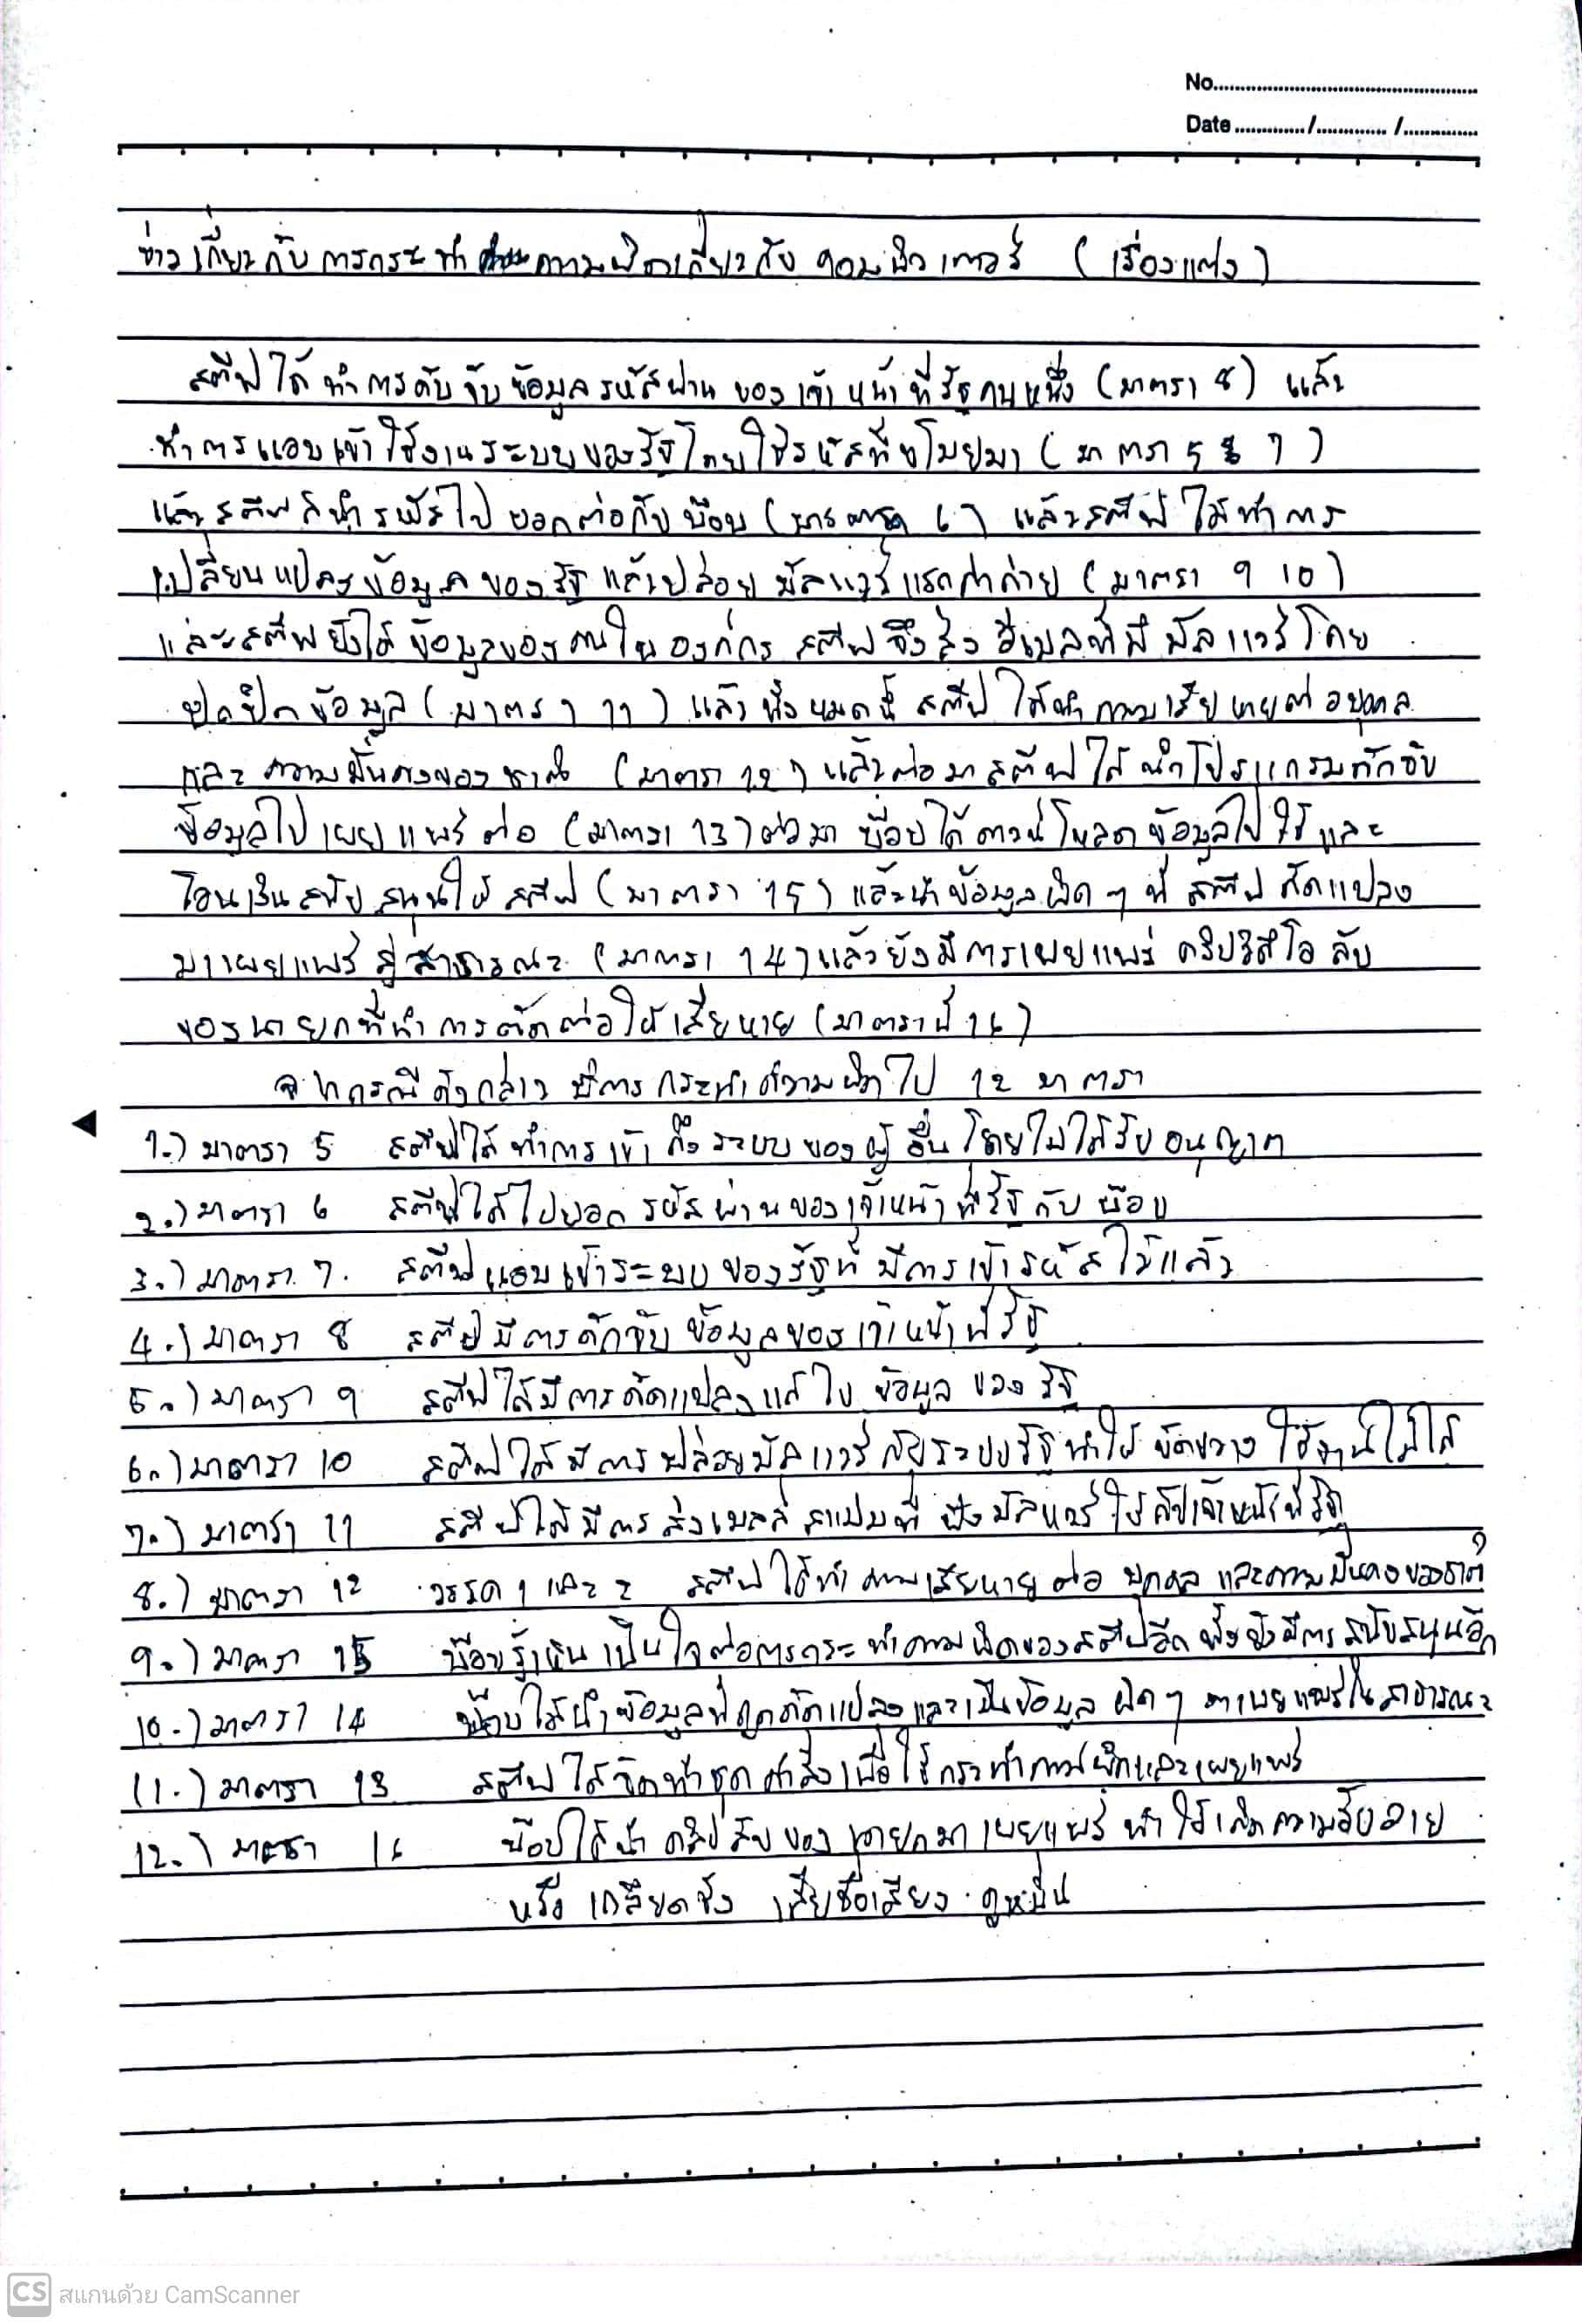 No.
Date / /
ข่าวเกี่ยวกับการกระทำความผิดเกี่ยวกับคอมพิวเตอร์ (เรื่องแต่ง)
สตีฟได้ทำการดับจับข้อมูลรหัสผ่านของเจ้าหน้าที่รัฐคนหนึ่ง (มาตรา 8) แล้ว
ทำการแอบเข้าใช้งานระบบของรัฐโดยใช้รหัสที่ขโมยมา (มาตรา 5 7)
แล้วสตีฟก็นำรหัสไปบอกต่อกับบ๊อบ (มาตรา 6) แล้วสตีฟได้ทำการ
เปลี่ยนแปลงข้อมูลของรัฐแล้วปล่อยมัลแวร์แรกค่าถ่าย (มาตรา 9 10)
และสตีฟยังได้ข้อมูลของคนในองค์กร สตีฟจึงส่งอีเมลที่มีมัลแวร์โดย
ปกปิดข้อมูล (มาตรา 11) แล้วทั้งหมดนี้ สตีฟได้ทำความเสียหายต่อบุคคล
และความมั่นคงของชาติ (มาตรา 12) แล้วต่อมาสตีฟได้นำโปรแกรมดักจับ
ข้อมูลไปเผยแพร่ต่อ (มาตรา 13) ต่อมา บ๊อบได้ดาวน์โหลดข้อมูลไปใช้และ
โอนเงินสนับสนุนให้สตีฟ (มาตรา 15) แล้วนำข้อมูลผิดๆ ที่สตีฟดัดแปลง
มาเผยแพร่สู่สาธารณะ (มาตรา 14) แล้วยังมีการเผยแพร่คลิปวิดีโอลับ
ของนายกที่ทำการตัดต่อให้เสียหาย (มาตราที่ 16)
จากกรณีดังกล่าวมีการกระทำความผิดไป 12 มาตรา
1.) มาตรา 5 สตีฟได้ทำการเข้าถึงระบบของผู้อื่นโดยไม่ได้รับอนุญาต
2.) มาตรา 6 สตีฟได้ไปบอกรหัสผ่านของเจ้าหน้าที่รัฐกับบ๊อบ
3.) มาตรา 7. สตีฟแอบเข้าระบบของรัฐที่มีการเข้ารหัสไว้แล้ว
4.) มาตรา 8 สตีฟมีการดักจับข้อมูลของเจ้าหน้าที่รัฐ
5.) มาตรา 9 สตีฟได้มีการดัดแปลงแก้ไขข้อมูลของรัฐ
6.) มาตรา 10 สตีฟได้มีการปล่อยมัลแวร์กับระบบรัฐทำให้ขัดขวางใช้งานไม่ได้
7.) มาตรา 11 สตีฟได้มีการส่งเมลล์สแปมที่ฝังมัลแวร์ให้กับเจ้าหน้าที่รัฐ
8.) มาตรา 12 วรรค 1 และ 2 สตีฟได้ทำความเสียหายต่อบุคคลและความมั่นคงของชาติ
9.) มาตรา 15 บ๊อบรู้เห็นเป็นใจต่อการกระทำความผิดของสตีฟอีกทั้งยังมีการสนับสนุนอีก
10.) มาตรา 14 บ๊อบได้นำข้อมูลที่ถูกดัดแปลงและเป็นข้อมูลผิดๆ มาเผยแพร่ในสาธารณะ
11.) มาตรา 13 สตีฟได้จัดทำชุดคำสั่งเพื่อใช้กระทำความผิดและเผยแพร่
12.) มาตรา 16 บ๊อบได้นำคลิปลับของนายกมาเผยแพร่ทำให้เกิดความอับอาย
หรือเกลียดชัง เสียชื่อเสียง ดูหมิ่น
CS สแกนด้วย CamScanner